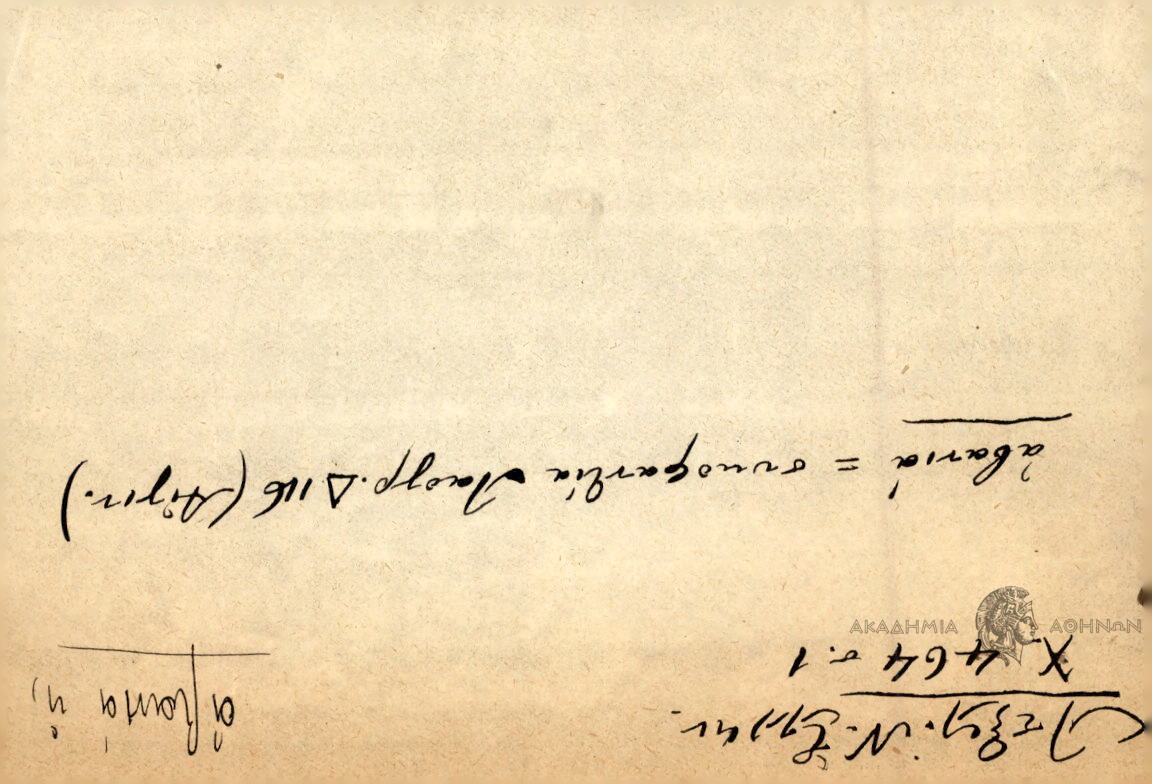 Λεξ. Ν. Ἑλλην.
Χ 464 σ. 1
ἀβανιά ἡ,
ἀβανιά = συκοφαντία Λαογρ. Δ 116 (Αἴγιν.)
ΑΚΑΔΗΜΙΑ ΑΘΗΝΩΝ